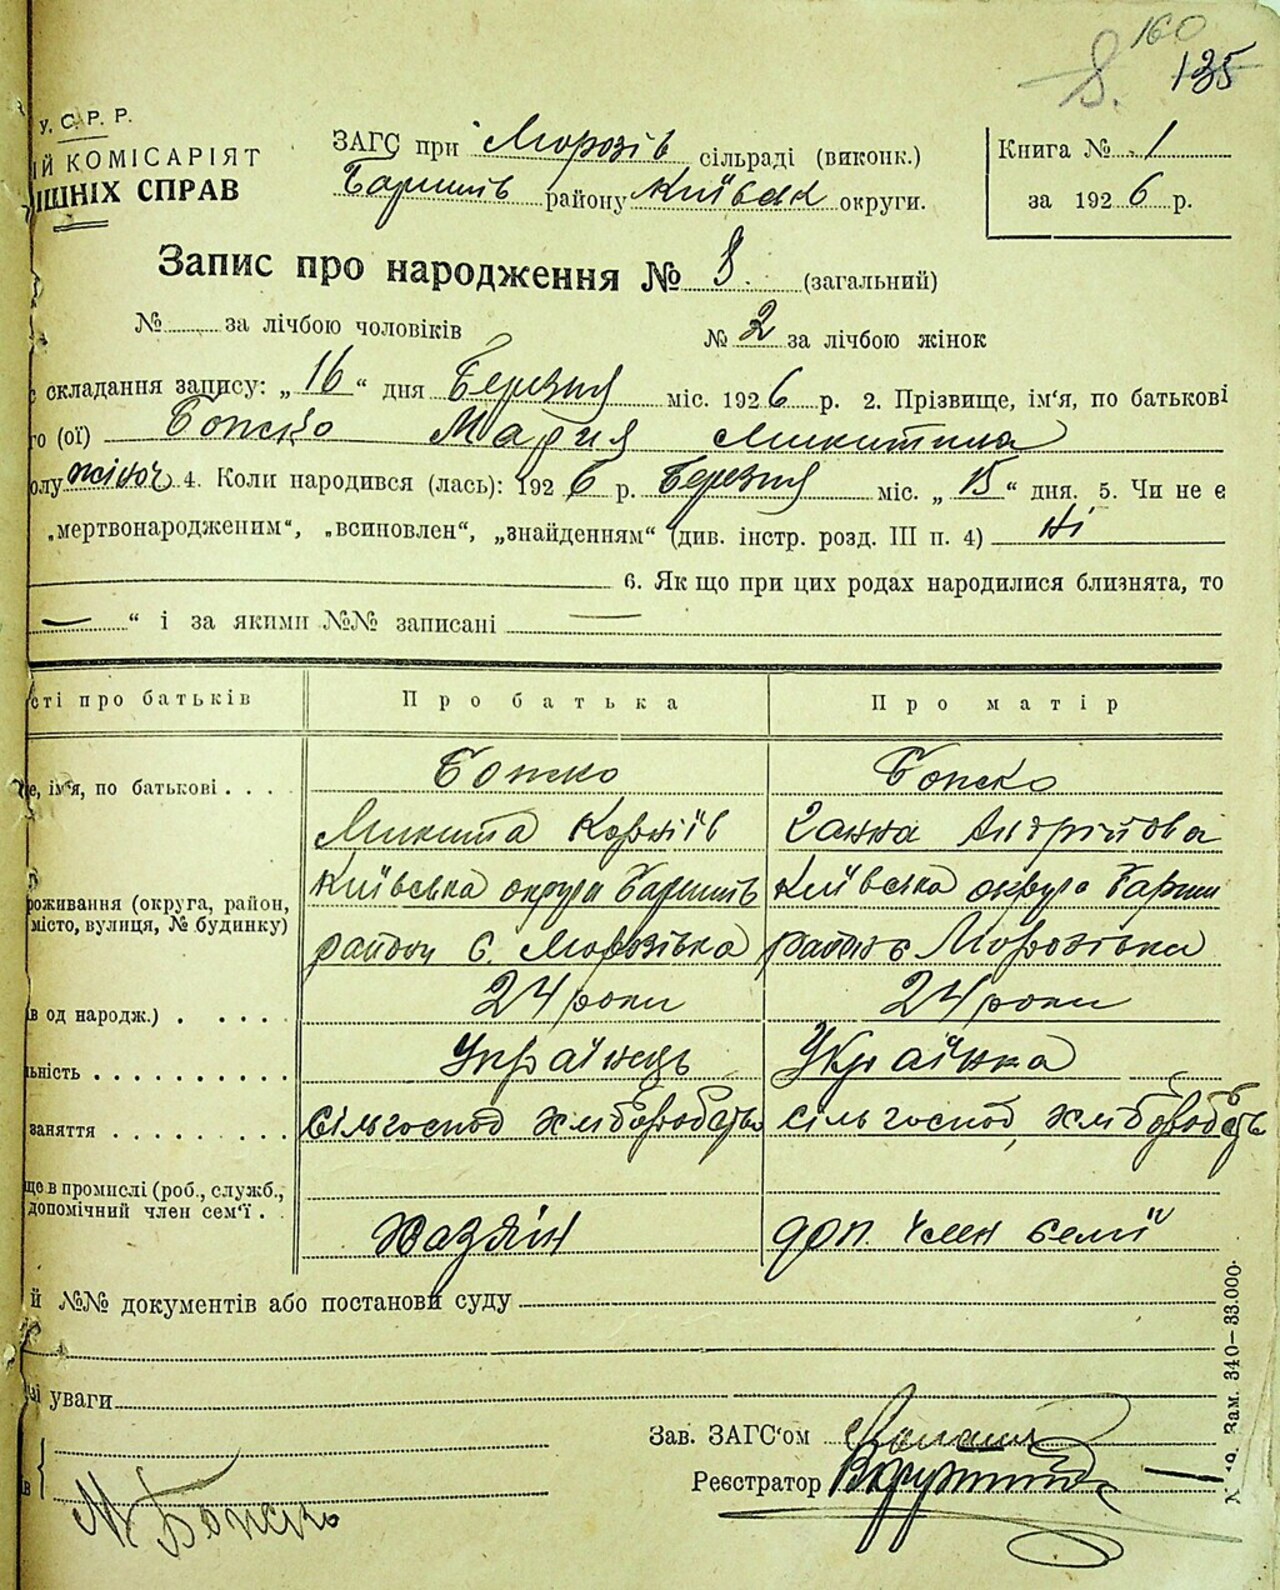 160
8. 135
У. С. Р. Р.
ІЙ КОМІСАРІЯТ
ІШНІХ СПРАВ
ЗАГС при Морозів сільраді (виконк.)
Баришів району Київськ округи.
Книга № 1
за 1926 р.
Запис про народження № 8. (загальний)
№ за лічбою чоловіків № 2 за лічбою жінок
складання запису: „16“ дня Березня міс. 1926 р. 2. Прізвище, ім‘я, по батькові
го (ої) Бопско Мария Микитина
олу жіноч 4. Коли народився (лась): 1926 р. Березня міс. „15“ дня. 5. Чи не є
„мертвонародженим“, „всиновлен“, „знайденням“ (див. інстр. розд. III п. 4) Ні
6. Як що при цих родах народилися близнята, то
— “ і за якими №№ записані —
сті про батьків Про батька Про матір
е, ім‘я, по батькові . . . . Бопско Бопско
Микита Корніїв Ганна Андрійова
роживання (округа, район, Київська округа Баришів Київська округа Бариш
місто, вулиця, № будинку)
район С. Морозівка район с Морозівка
в од народж.) . . . . . 24 роки 24 роки
ьність . . . . . . . . . . Українець Українка
заняття . . . . . . . . . Сільгоспод хліборобств сільгоспод, хліборобств
ще в промислі (роб., служб.,
допомічний член сем‘ї . .
Хазяїн доп. член семії
й №№ документів або постанови суду
уваги
Зав. ЗАГС‘ом
Реєстратор
М Бопско
Зам. 340—33.000.